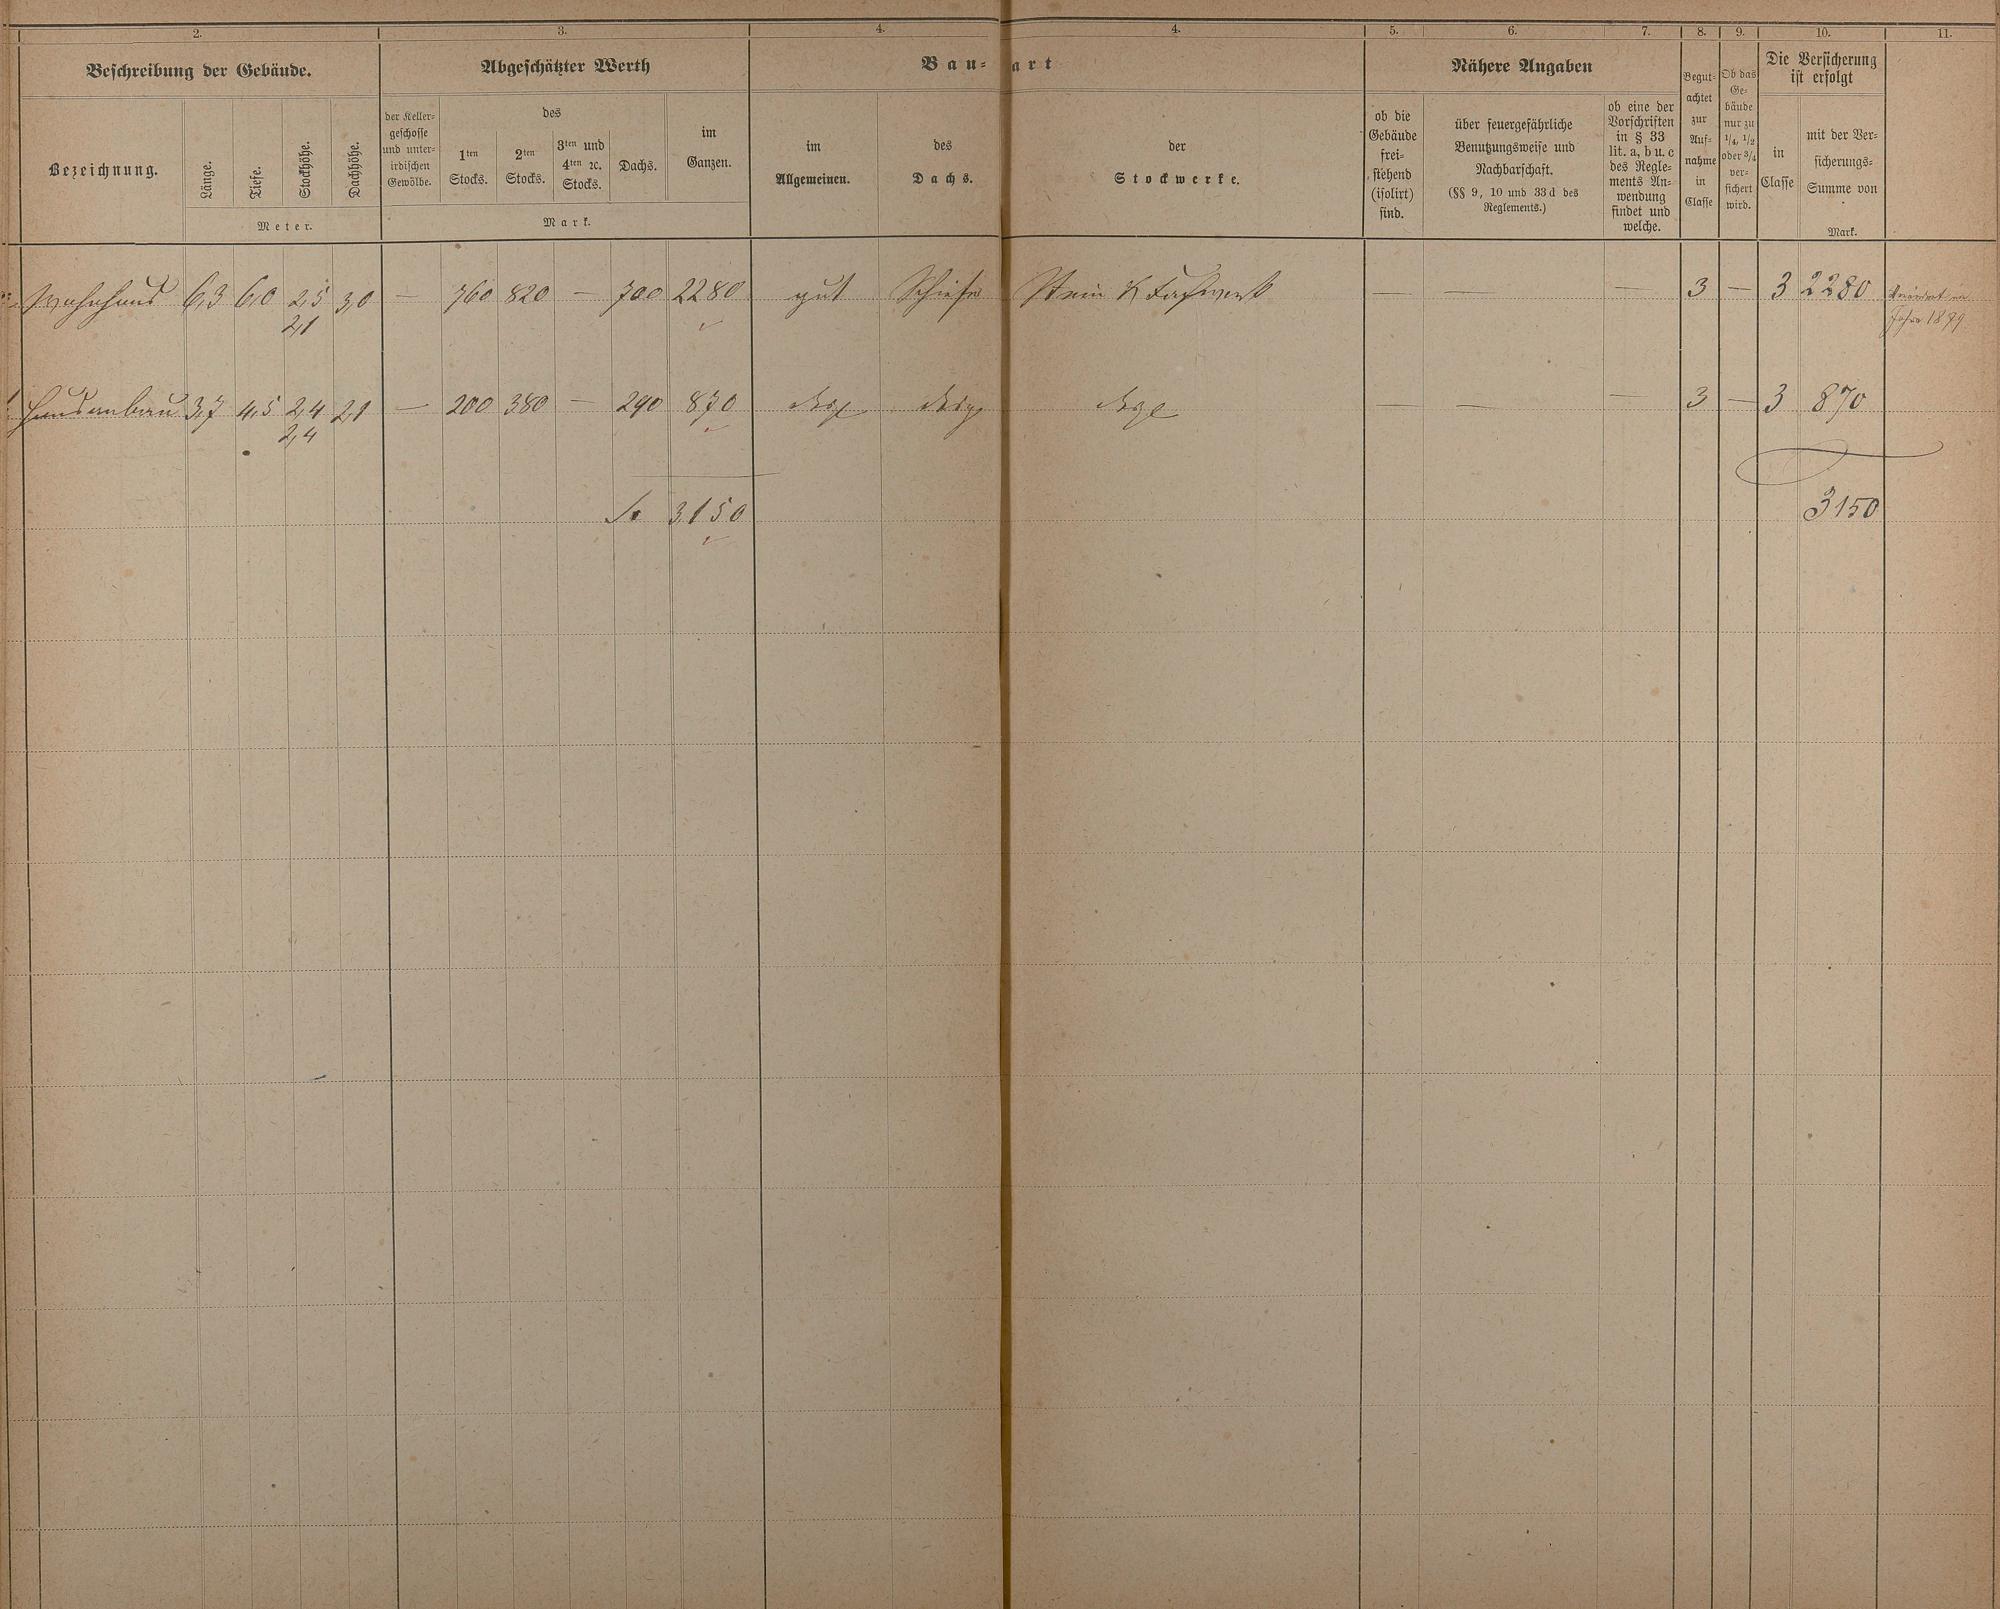 2. 3. 4. 4. 5. 6. 7. 8. 9. 10. 11.
Beschreibung der Gebäude.
Bezeichnung.
Länge.
Tiefe.
Stockhöhe.
Dachhöhe.
Meter.
Abgeschätzter Werth
der Keller-
geschosse
und unter-
irdischen
Gewölbe.
des
1ten
Stocks.
2ten
Stocks.
3ten und
4ten ꝛc.
Stocks.
Dachs.
im
Ganzen.
Mark.
Bau-art
im
Allgemeinen.
des
Dachs.
der
Stockwerke.
Nähere Angaben
ob die
Gebäude
frei-
stehend
(isolirt)
sind.
über feuergefährliche
Benutzungsweise und
Nachbarschaft.
(§§ 9, 10 und 33d des
Reglements.)
ob eine der
Vorschriften
in § 33
lit. a, b u. c
des Regle-
ments An-
wendung
findet und
welche.
Begut-
achtet
zur
Auf-
nahme
in
Classe
Ob das
Ge-
bäude
nur zu
1/4, 1/2
oder 3/4
ver-
sichert
wird.
Die Versicherung
ist erfolgt
in
Classe
mit der Ver-
sicherungs-
Summe von
Mark.
Wohnhaus 6,3 6,0 2,5 3,0 — 760 820 — 700 2280 gut Schiefer Stein & Fachwerk — — — 3 — 3 2280
2,1
Jahre 1879
Hausanbau 3,7 4,5 2,4 2,1 — 200 380 — 290 870 desgl desgl desgl — — — 3 — 3 870
2,4
Sa 3150 3150